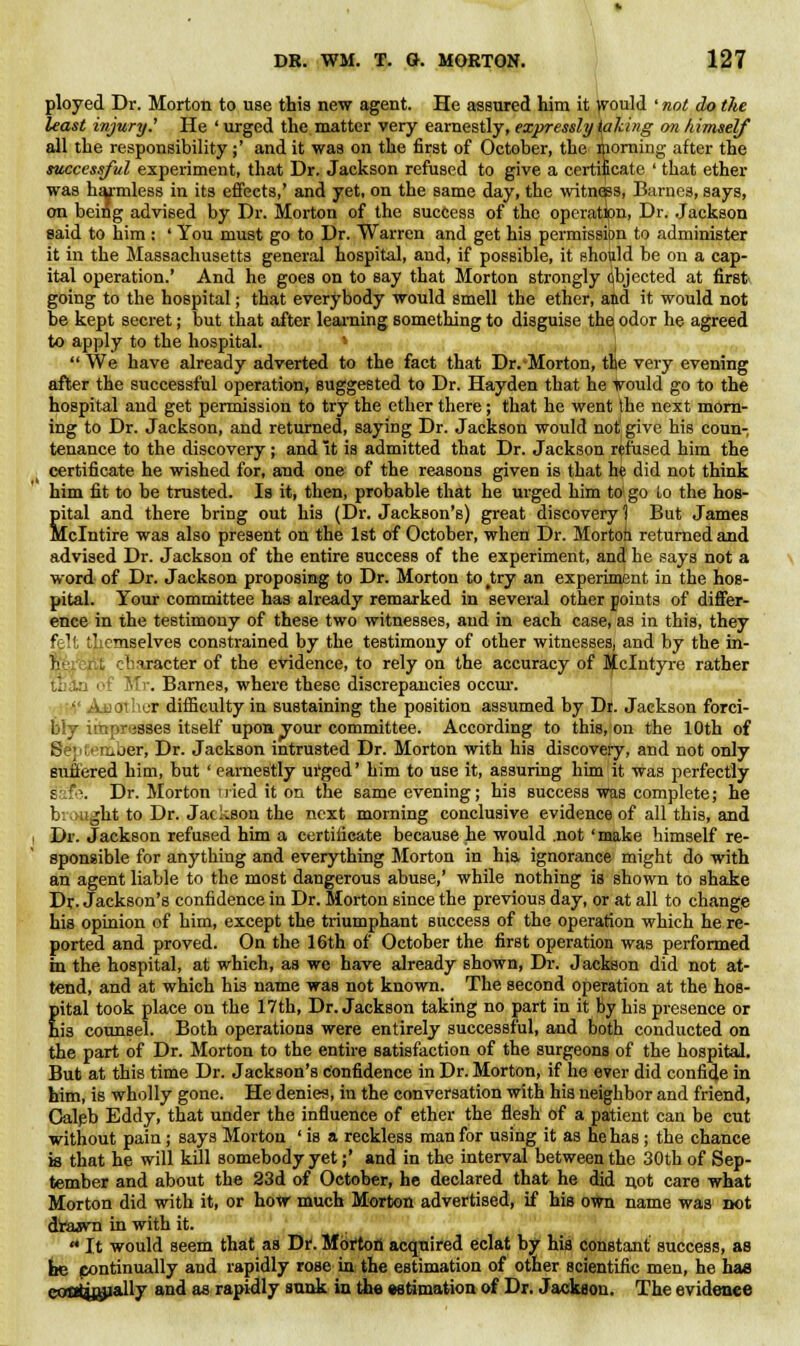 DR. WM. T. G. MORTON. 127
ployed Dr. Morton to use this new agent. He assured him it would ‘not do the
least injury.’ He ‘urged the matter very earnestly, expressly taking on himself
all the responsibility;’ and it was on the first of October, the morning after the
successful experiment, that Dr. Jackson refused to give a certificate ‘that ether
was harmless in its effects,’ and yet, on the same day, the witness, Barnes, says,
on being advised by Dr. Morton of the success of the operation, Dr. Jackson
said to him: ‘You must go to Dr. Warren and get his permission to administer
it in the Massachusetts general hospital, and, if possible, it should be on a cap-
ital operation.’ And he goes on to say that Morton strongly objected at first
going to the hospital; that everybody would smell the ether, and it would not
be kept secret; but that after learning something to disguise the odor he agreed
to apply to the hospital.
“We have already adverted to the fact that Dr. Morton, the very evening
after the successful operation, suggested to Dr. Hayden that he would go to the
hospital and get permission to try the ether there; that he went the next morn-
ing to Dr. Jackson, and returned, saying Dr. Jackson would not give his coun-
tenance to the discovery; and it is admitted that Dr. Jackson refused him the
certificate he wished for, and one of the reasons given is that he did not think
him fit to be trusted. Is it, then, probable that he urged him to go to the hos-
pital and there bring out his (Dr. Jackson's) great discovery? But James
McIntire was also present on the 1st of October, when Dr. Morton returned and
advised Dr. Jackson of the entire success of the experiment, and he says not a
word of Dr. Jackson proposing to Dr. Morton to try an experiment in the hos-
pital. Your committee has already remarked in several other points of differ-
ence in the testimony of these two witnesses, and in each case, as in this, they
felt themselves constrained by the testimony of other witnesses, and by the in-
herent character of the evidence, to rely on the accuracy of McIntyre rather
than of Mr. Barnes, where these discrepancies occur.
“Another difficulty in sustaining the position assumed by Dr. Jackson forci-
bly impresses itself upon your committee. According to this, on the 10th of
September, Dr. Jackson intrusted Dr. Morton with his discovery, and not only
suffered him, but ‘earnestly urged’ him to use it, assuring him it was perfectly
safe. Dr. Morton tried it on the same evening; his success was complete; he
brought to Dr. Jackson the next morning conclusive evidence of all this, and
Dr. Jackson refused him a certificate because he would .not ‘make himself re-
sponsible for anything and everything Morton in his ignorance might do with
an agent liable to the most dangerous abuse,’ while nothing is shown to shake
Dr. Jackson's confidence in Dr. Morton since the previous day, or at all to change
his opinion of him, except the triumphant success of the operation which he re-
ported and proved. On the 16th of October the first operation was performed
in the hospital, at which, as we have already shown, Dr. Jackson did not at-
tend, and at which his name was not known. The second operation at the hos-
pital took place on the 17th, Dr. Jackson taking no part in it by his presence or
his counsel. Both operations were entirely successful, and both conducted on
the part of Dr. Morton to the entire satisfaction of the surgeons of the hospital.
But at this time Dr. Jackson's confidence in Dr. Morton, if he ever did confide in
him, is wholly gone. He denies, in the conversation with his neighbor and friend,
Caleb Eddy, that under the influence of ether the flesh of a patient can be cut
without pain; says Morton ‘is a reckless man for using it as he has; the chance
is that he will kill somebody yet;’ and in the interval between the 30th of Sep-
tember and about the 23d of October, he declared that he did not care what
Morton did with it, or how much Morton advertised, if his own name was not
drawn in with it.
“It would seem that as Dr. Morton acquired eclat by his constant success, as
he continually and rapidly rose in the estimation of other scientific men, he has
continually and as rapidly sunk in the estimation of Dr. Jackson. The evidence